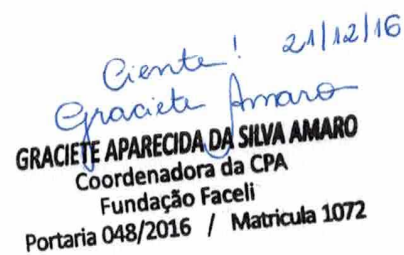 Ciente! 21/12/16
Graciete Amaro
GRACIETE APARECIDA DA SILVA AMARO
Coordenadora da CPA
Fundação Faceli
Portaria 048/2016 / Matricula 1072